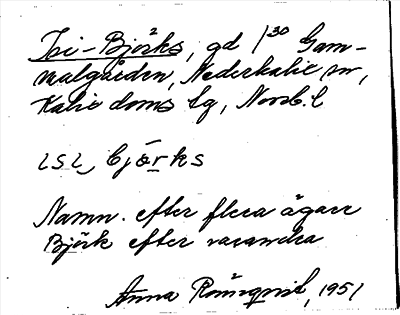 Tri-Björks, gd 1³⁰ Gam-
malgården, Nederkalix sn,
Kalix doms lg, Norrb. l
ɩsɩ, bjö̱rks
Namn. efter flera ägare
Björk efter varandra
Anna Rönnqvist, 1951